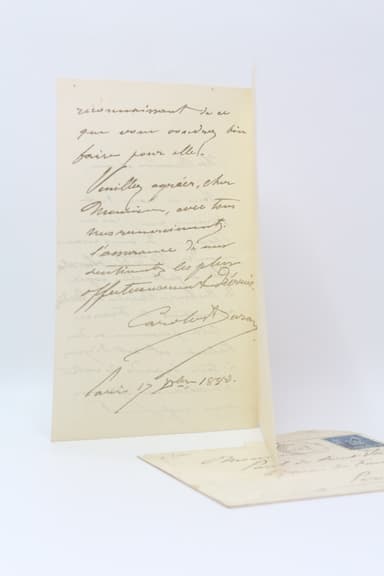 reconnaissant de ce
que vous voudrez bien
faire pour elle.
Veuillez agréer, cher
Monsieur, avec tous
mes remerciements,
l'assurance de mes
sentiments les plus
affectueusement dévoués.
Carolus Duran
Paris 17 1888.